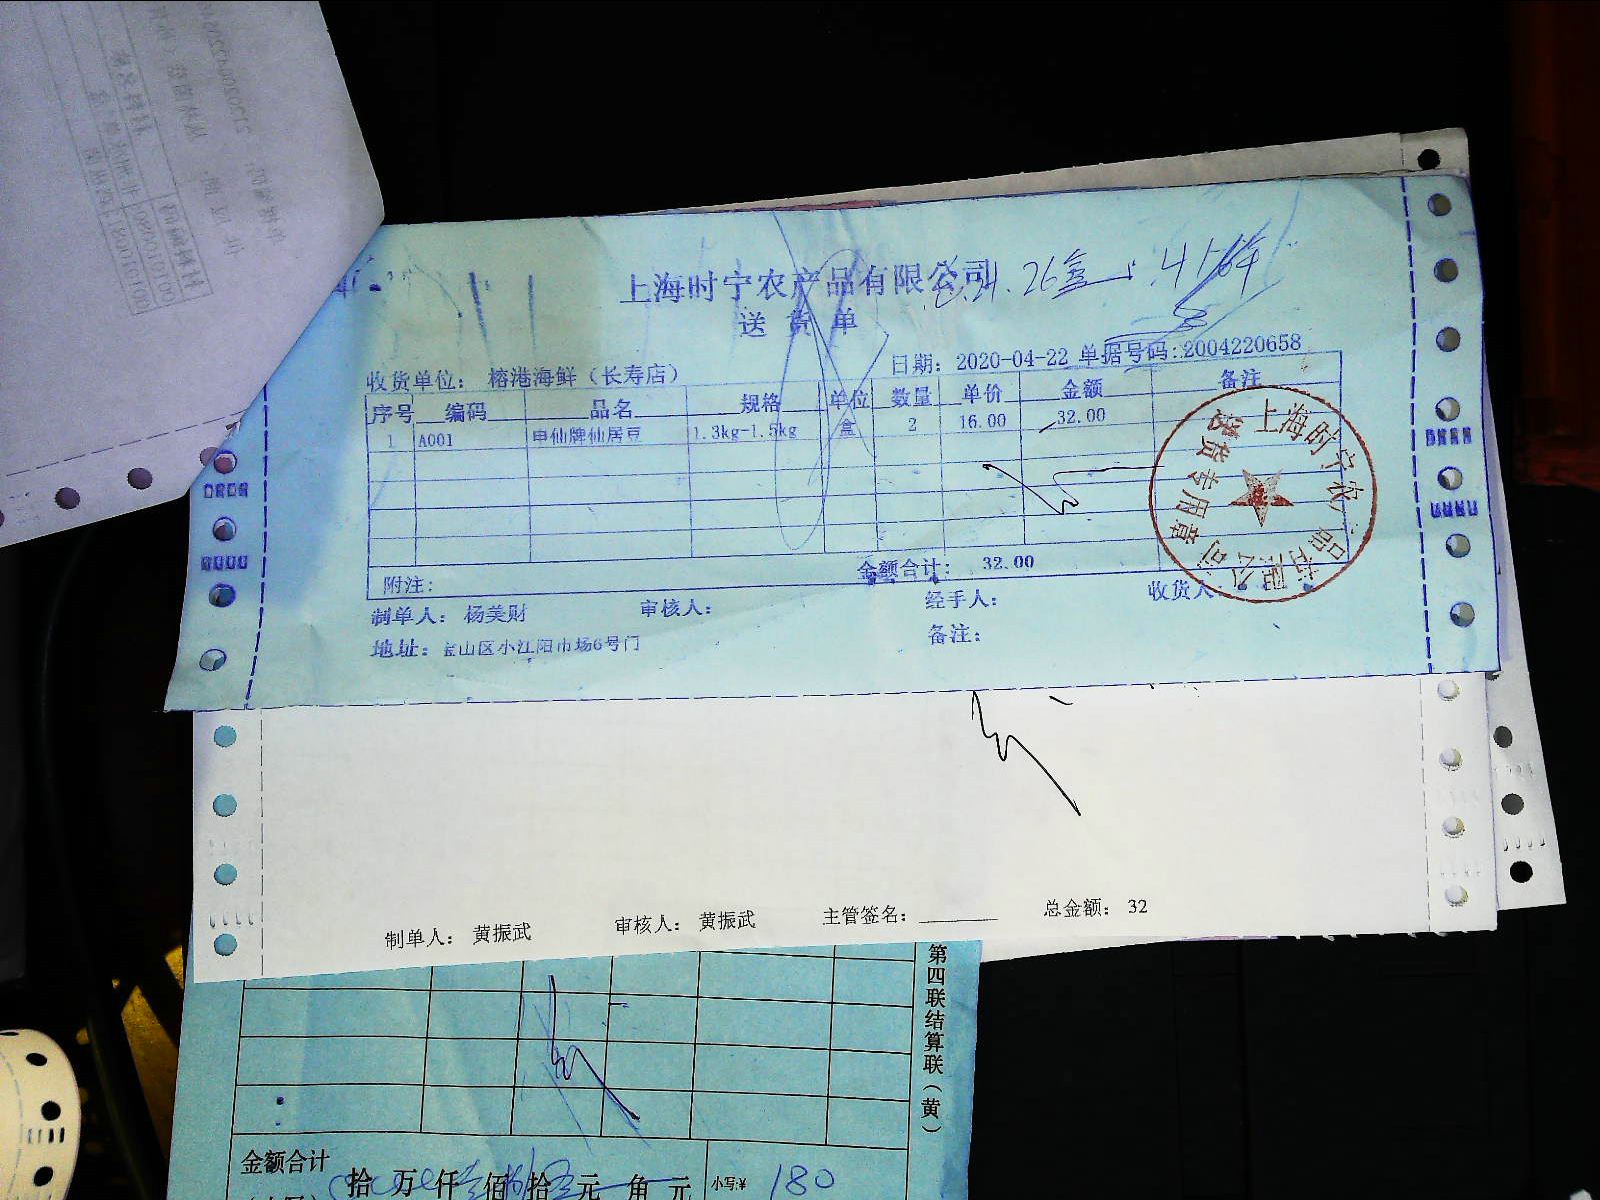 上海时宁农产品有限公司
送货单
日期: 2020-04-22 单据号码:2004220658
收货单位: 榕港海鲜（长寿店）
序号 编码 品名 规格 单位 数量 单价 金额 备注
1 A001 申仙牌仙居豆 1.3kg-1.5kg 盒 2 16.00 32.00
金额合计: 32.00
附注:
制单人: 杨美财 审核人: 经手人: 收货人
地址: 宝山区小江阳市场6号门 备注:
上海时宁农产品有限公司
送货专用章
制单人: 黄振武 审核人: 黄振武 主管签名: 总金额: 32
第四联结算联（黄）
金额合计
拾 万 仟 佰 拾 元 角 元 小写:¥ 180